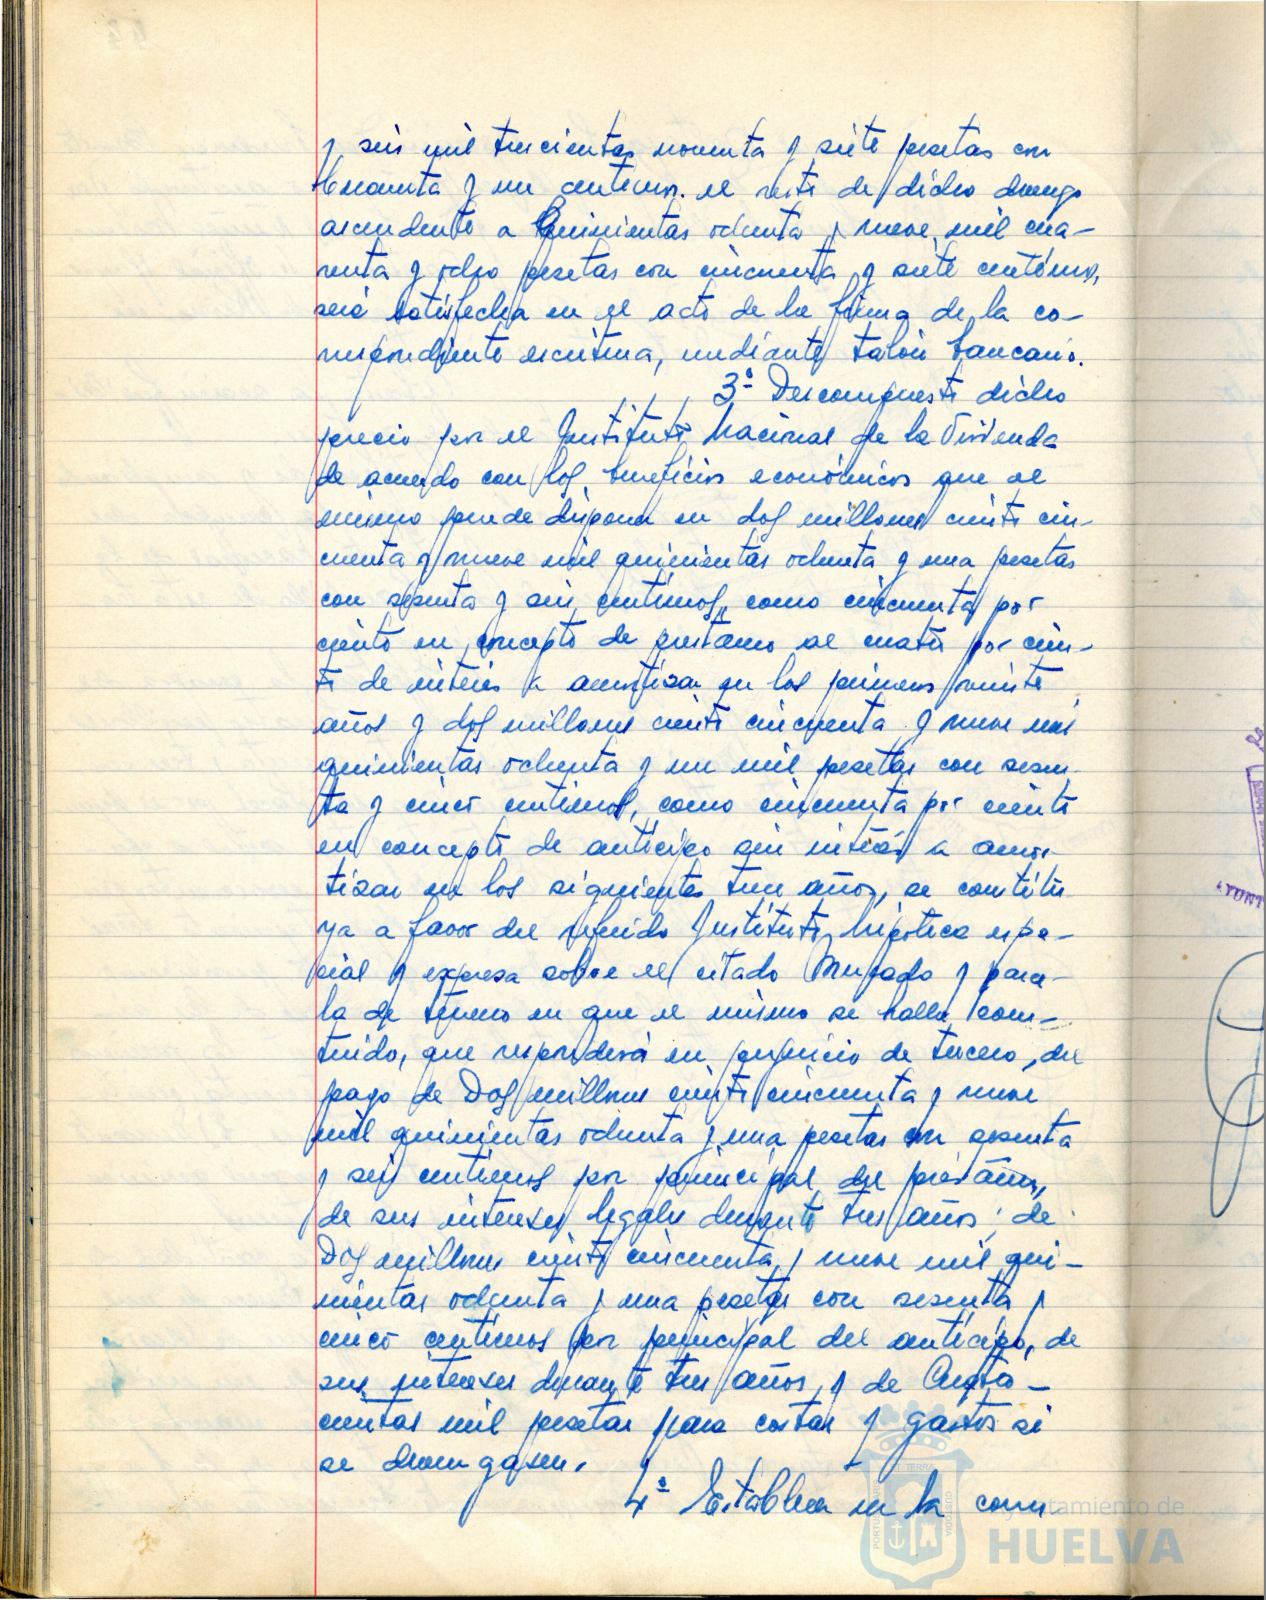 y seis mil trescientas noventa y siete pesetas con
cincuenta y un centimos. el resto de dicho devengo
ascendente a Quinientas ochenta y nueve mil cua-
renta y ocho pesetas con cincuenta y siete centimos,
será satisfecha en el acto de la firma de la co-
rrespondiente escritura, mediante talón bancario.
3º Descompuesto dicho
precio por el Instituto Nacional de la Vivienda
de acuerdo con los beneficios económicos que el
mismo puede disponer en dos millones ciento cin-
cuenta y nueve mil quinientas ochenta y una pesetas
con sesenta y seis centimos, como cincuenta por
ciento en concepto de prestamo al cuatro por cien-
to de interés a amortizar en los primeros veinte
años y dos millones ciento cincuenta y nueve mil
quinientas ochenta y un mil pesetas con sesen-
ta y cinco centimos, como cincuenta por ciento
en concepto de anticipo sin interés a amor-
tizar en los siguientes tres años, se constitu-
ya a favor del referido Instituto, hipoteca espe-
cial y expresa sobre el citado Mercado y parce-
la de terreno en que el mismo se halla cons-
truido, que responderá en perjuicio de tercero, del
pago de Dos millones ciento cincuenta y nueve
mil quinientas ochenta y una pesetas con sesenta
y seis centimos por principal del préstamo,
de sus intereses legales durante tres años; de
Dos millones ciento cincuenta y nueve mil qui-
nientas ochenta y una pesetas con sesenta y
cinco centimos por principal del anticipo, de
sus intereses durante tres años, y de Cuatro-
cientas mil pesetas para costas y gastos si
se devengasen.
4º Establecer en la
Ayuntamiento de
HUELVA